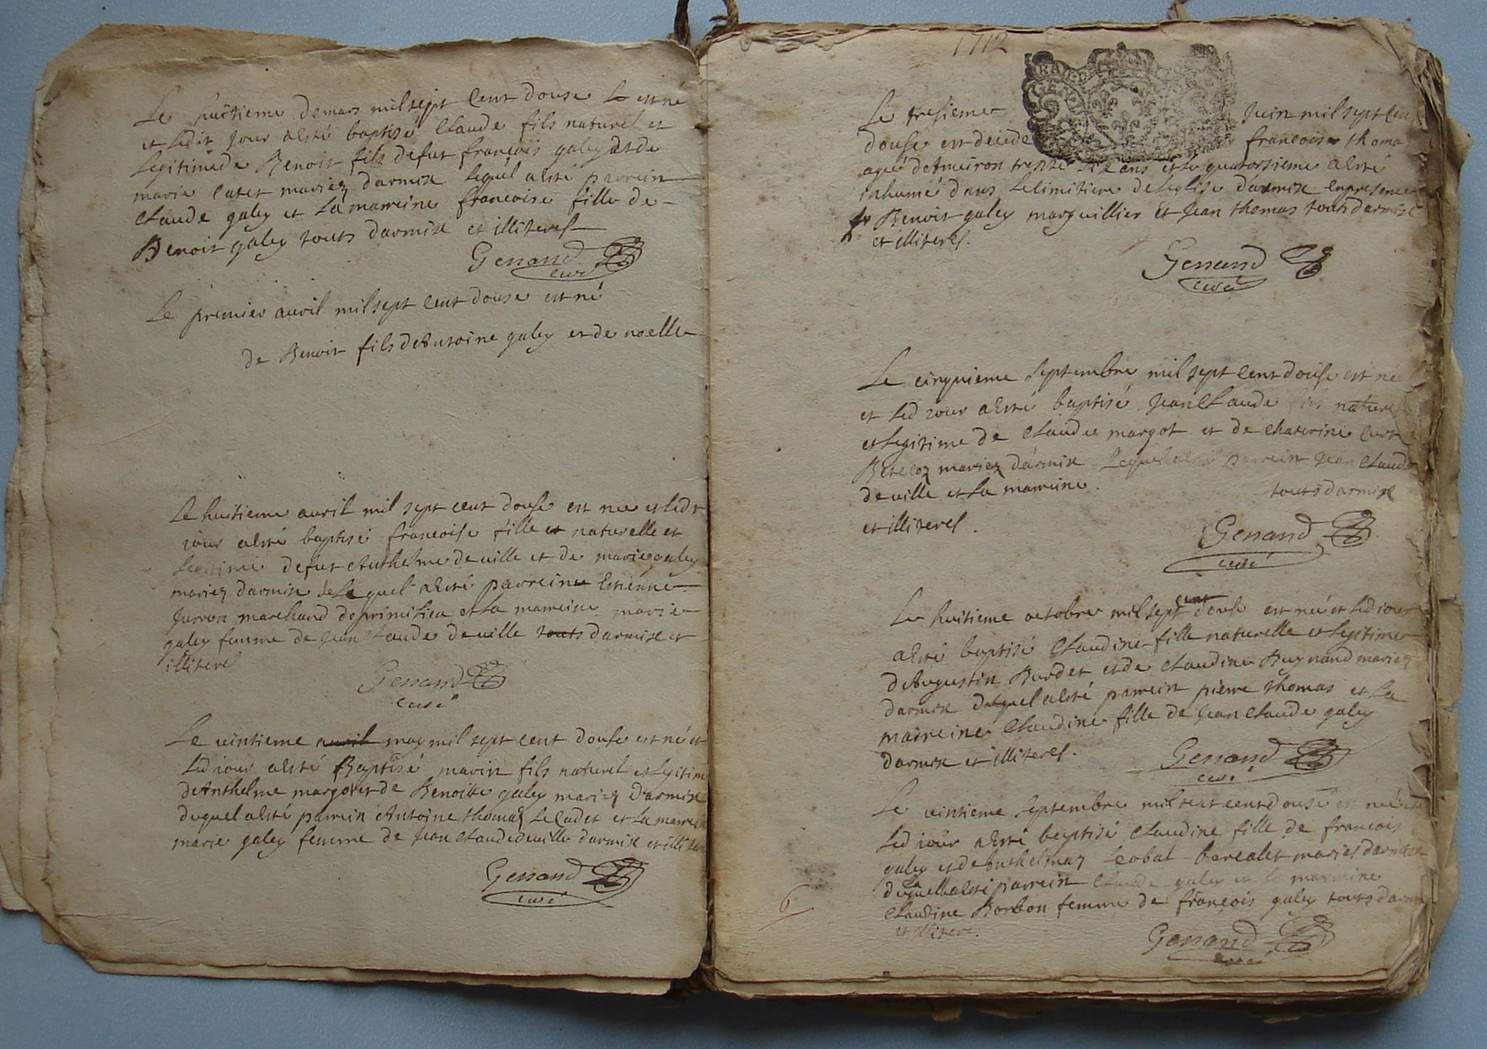 Le huitieme de mars mil sept cent douse est né
et ledit jour a esté baptisé Claude fils naturel et
legitime de Benoit fils de fut françois galey et de
marie catet mariez darmix lequel a esté parrein
Claude galey et la marreine francoise fille de
Benoit galey touts darmix et illiteres
Genand
curé
Le premier avril mil sept cent douse est né
de Benoit fils de Antoine galey et de noelle
Le huitieme avril mil sept cent douse est nee et led
jour a esté baptisé francoise fille et naturelle et
legitime de fut Anthelme deville et de marie galey
mariez darmix lequel a esté parreine Estienne
Juvon marchand de primilieu et la marreine marie
galey femme de Jean Claude deville touts darmix et
illiteres
Genand
curé
Le vintieme avril may mil sept cent douse est né et
led jour a esté Baptisé marin fils naturel et legitime
de Anthelme margot et de Benoitte galey mariez darmix
duquel a esté parrein Antoine thomas le Cadet et la marreine
marie galey femme de Jean Claude deville darmix et illiteres
Genand
curé
1712
Le tresieme Juin mil sept cen
douse est decedé francois thoma
agé de Anviron trente ans et le quatorsieme a esté
inhumé dans le cimitiere de leglise darmix en presence
Benoit galey marguillier et Jean thomas touts darmix
et illiteres.
Genand
curé
Le cinquieme septembre mil sept cent douse est né
et led jour a esté baptisé Jean Claude fils naturel
et legitime de Claude margot et de Chaterine
mariez darmix lequel a esté parrein Jean Claude
deville et la marreine . touts darmix
et illiteres.
Genand
curé
Le huitieme octobre mil sept cent douse est né et led jour
a esté baptisé Claudine fille naturelle et legitime
de Augustin Burdet et de Claudine Buynand mariez
darmix duquel a esté parrein pierre thomas et la
marreine Claudine fille de Jean Claude galey
darmix et illiteres.
Genand
curé
Le vintieme septembre mil sept cent douse est née et
led jour a esté baptisé Claudine fille de francois
galey et de Anthelmaz mariez darmix
duquel a esté parrein Claude galey et la marreine
Claudine Borbon femme de françois galey touts darmix
et illiteres.
6
Genand
curé